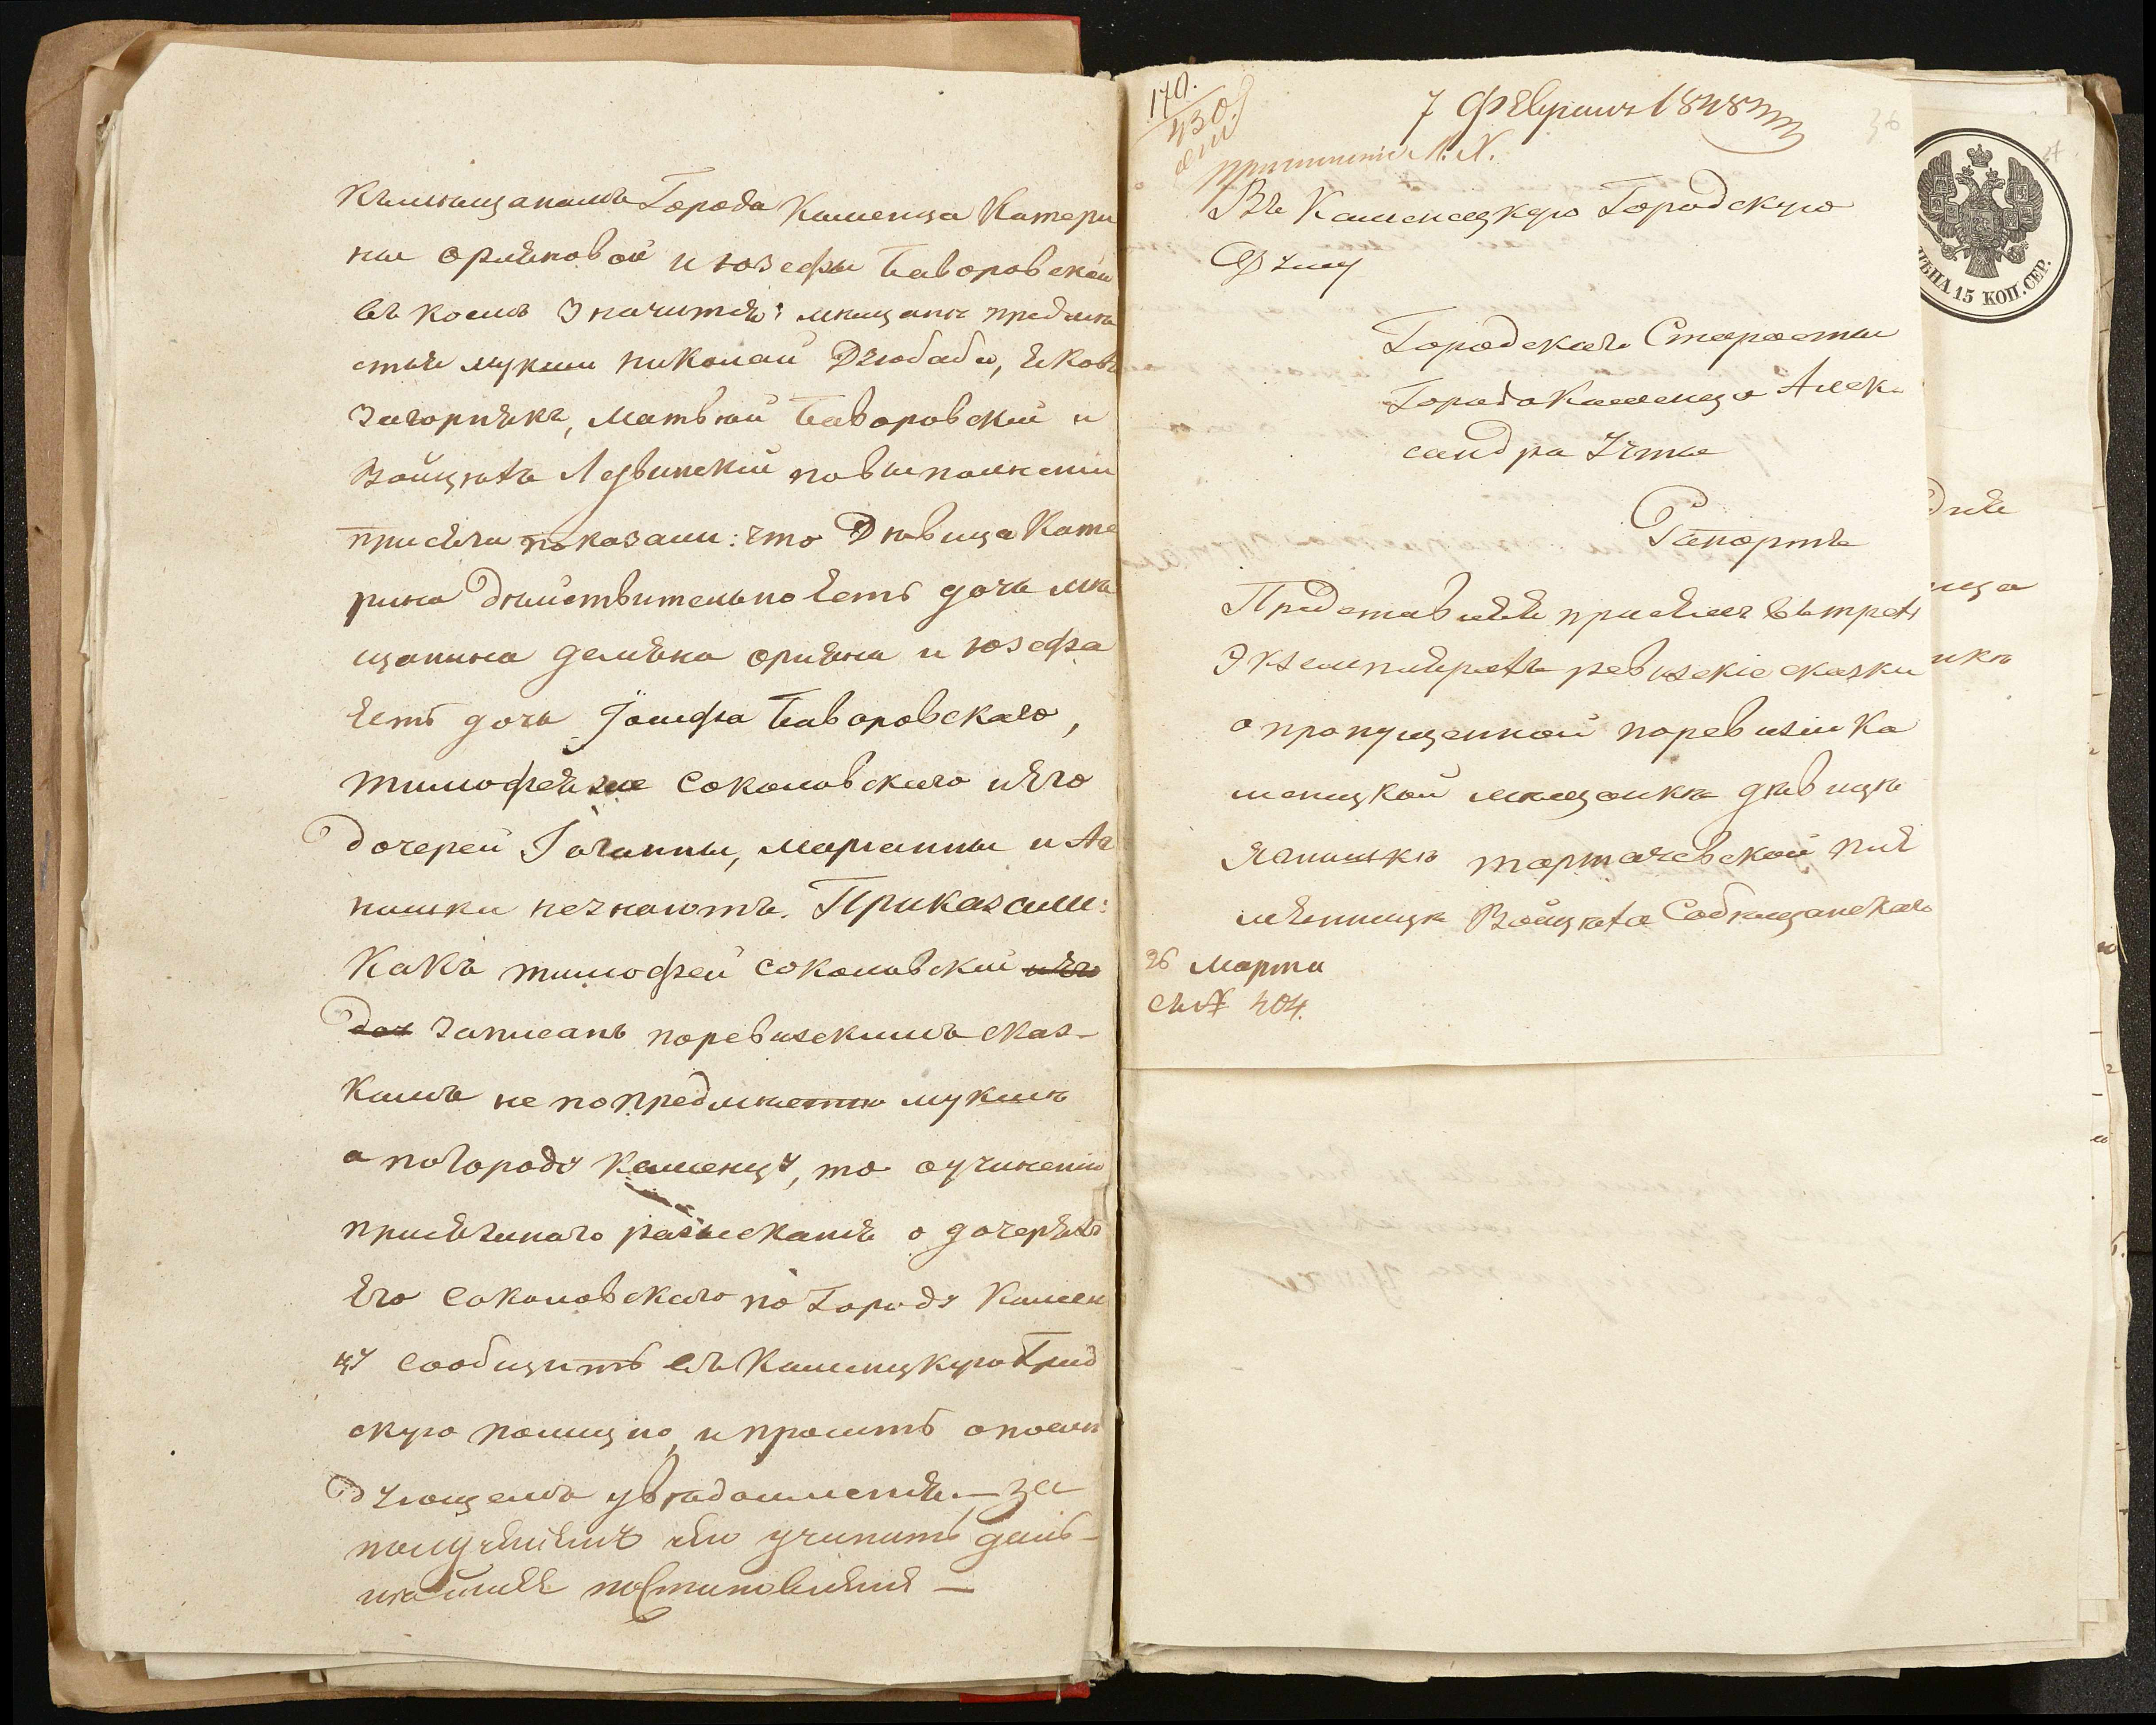 къ мѣщанамъ Города Каменца Катери
ны Оріяновой и Юзефы Баворовской
въ коемъ значится: мѣщане предмѣ
стья мукши николай Дзюбаба, яковъ
Загорнякъ, Матвѣй Баворовскій и
Войцѣхъ Ледвинскій по выполненіи
присяги показали: что Дѣвица Кате
рина дѣйствительно есть дочь мѣ
щанина Демяна Оріяна и Юзефа
есть дочь Іосифа Баворовскаго,
тимофея же Соколовскаго и его
дочерей Іоганны, Маріанны и Аг
нишки незнаютъ. Приказали:
Какъ тимофей Соколовскій и его
доч записанъ по ревизскимъ сказ-
камъ не по предмѣстію мукшѣ
а по Городу Каменцу, то о учиненіи
присяжнаго разысканія о дочеряхъ
его Соколовскаго по Городу Камен
цу сообщить въ Каменецкую Град
скую полицію, и просить о послѣ
дующемъ увѣдомленія. — за
полученіемъ его учинить даль-
нѣйшее постановленіе —
170.
430.
7 Февраля 1848
Въ Каменецкую Городскую
Думу
Городскаго Старосты
Города Каменца Алек
сандра
Рапортъ
Представляя присемъ въ трехъ
Экземплярахъ ревизскіе сказки
о пропущенной по ревизіи Ка
менецкой мѣщанкѣ дѣвицѣ
Ягнишкѣ тартачевской пле
мянницѣ Войцѣха Собѣщанскаго
26 Марта
съ № 404.
ЦѢНА 15 КОП. СЕР.